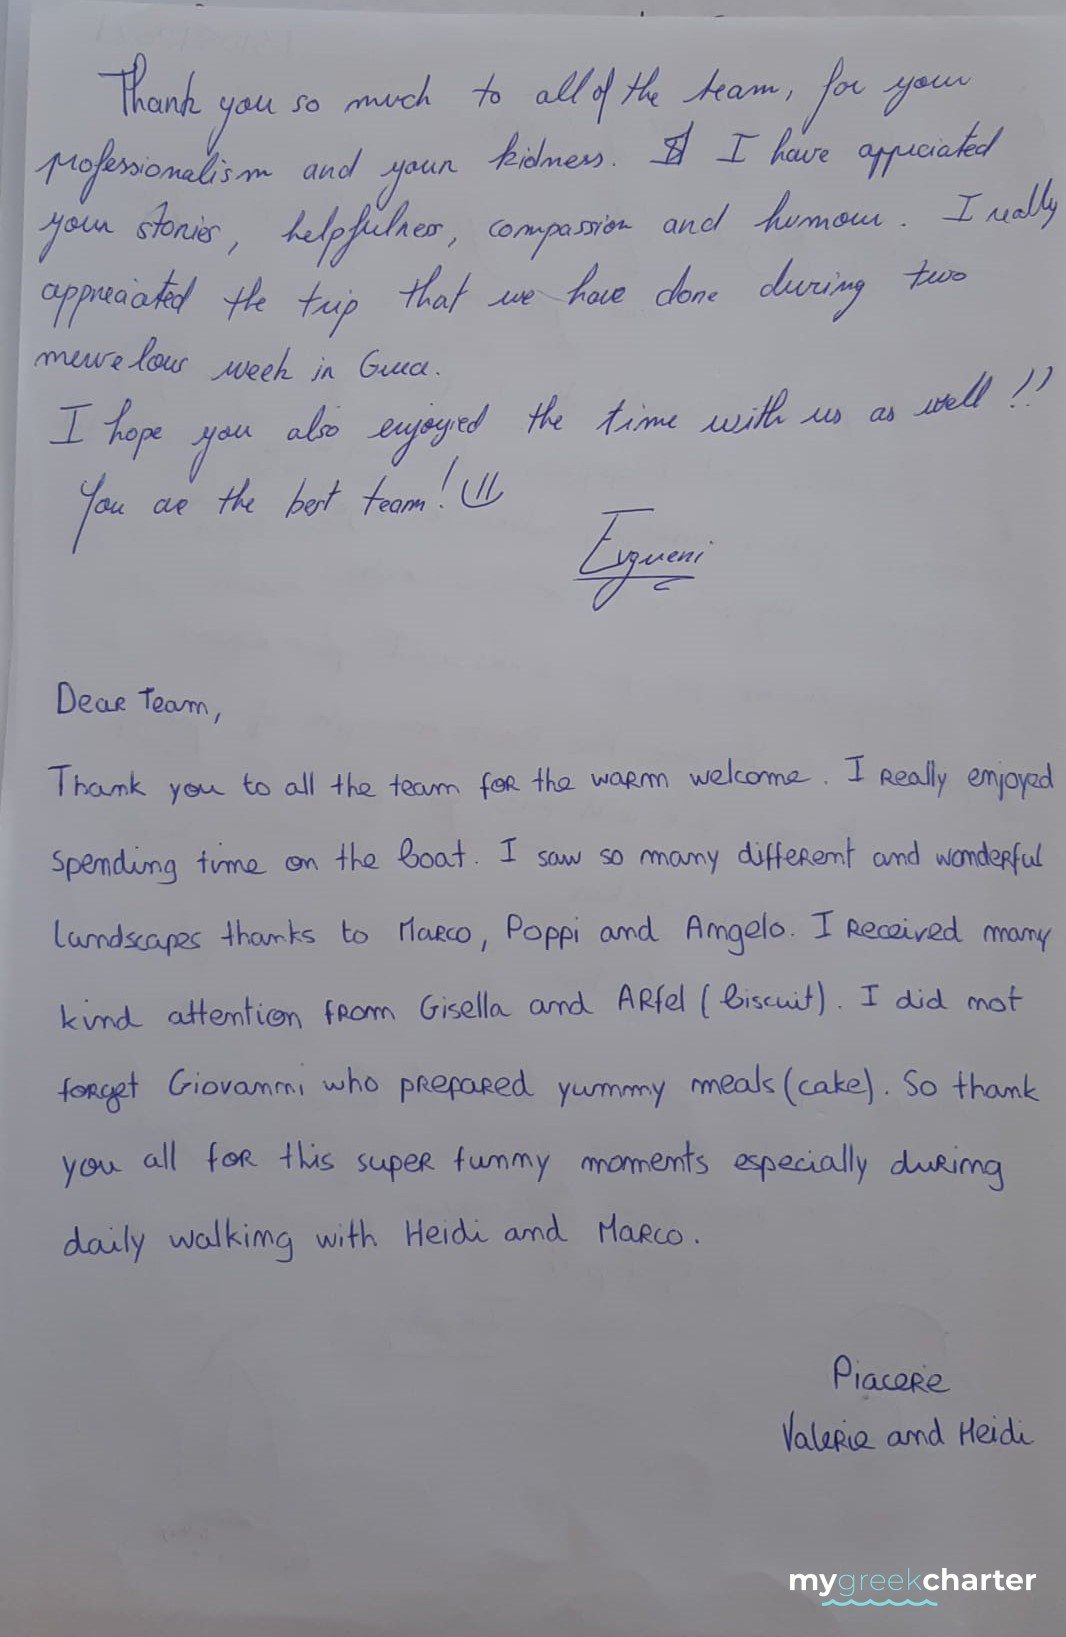 Thank you so much to all of the team, for your
professionalism and your kidness. I have appreciated
your stories, helpfulness, compassion and humour. I really
appreciated the trip that we have done during two
mervelous week in
I hope you also enjoyied the time with us as well !!
You are the best team!
Evgueni
Dear Team,
Thank you to all the team for the warm welcome. I really enjoyed
spending time on the boat. I saw so many different and wonderful
landscapes thanks to Marco, Poppi and Angelo. I received many
kind attention from Gisella and Arfel (biscuit). I did not
forget Giovanni who prepared yummy meals (cake). So thank
you all for this super funny moments especially during
daily walking with Heidi and Marco.
Piacere
Valerie and Heidi
mygreekcharter